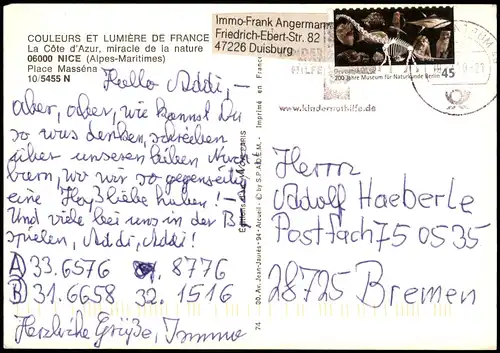 COULEURS ET LUMIÈRE DE FRANCE
La Côte d'Azur, miracle de la nature
06000 NICE (Alpes-Maritimes)
Place Masséna
10/5455 N
Immo-Frank Angerman
Friedrich-Ebert-Str. 82
47226 Duisburg
200 Jahre Museum für Naturkunde Berlin
45
HILFE
www.kindernothilfe.de
Hallo Addi,-
aber, aber, wie kannst Du
so was denken, schreiben
über unseren lieben Nach-
barn, wo wir so gegenseitig
eine Haßliebe haben!-
Und viele bei uns in der B
spielen, Addi, Addi!
A 33. 6576 8776
B 31. 6658 32. 1516
Herzliche Grüße, Immo
74 20, Av. Jean-Jaurès - 94 - Arcueil - © by S.P.A.D.E.M. - Imprimé en France
PARIS
Herrn
Adolf Haeberle
Postfach 75 05 35
28725 Bremen